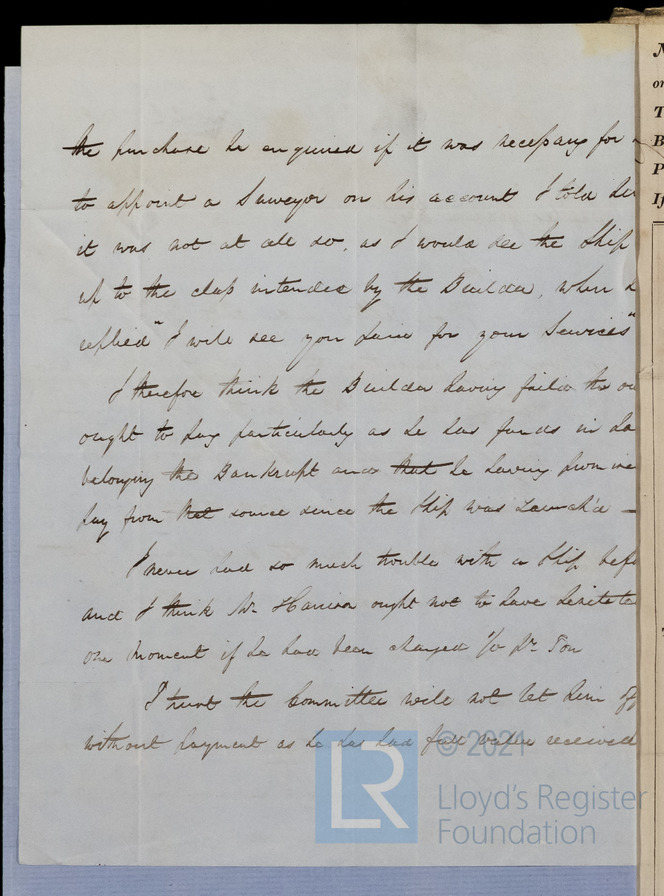 the purchase he enquired if it was necessary for
to appoint a Surveyor on his account I told
it was not at all so, as I would see the Ship
up to the class intended by the Builder, when
replied "I will see you paid for your Services"
I therefore think the Builder having failed the
ought to pay particularly as he has funds in
belonging the Bankrupt and that he having
pay from that source since the Ship was Launch'd —
I never had so much trouble with a Ship
and I think Mr. Harrison ought not to have
one moment if he had been charged 1/ pr. Ton
I trust the Committee will not let him
without payment as he has had full value received
N
T
B
P
If
LR
© 2021
Lloyd's Register
Foundation